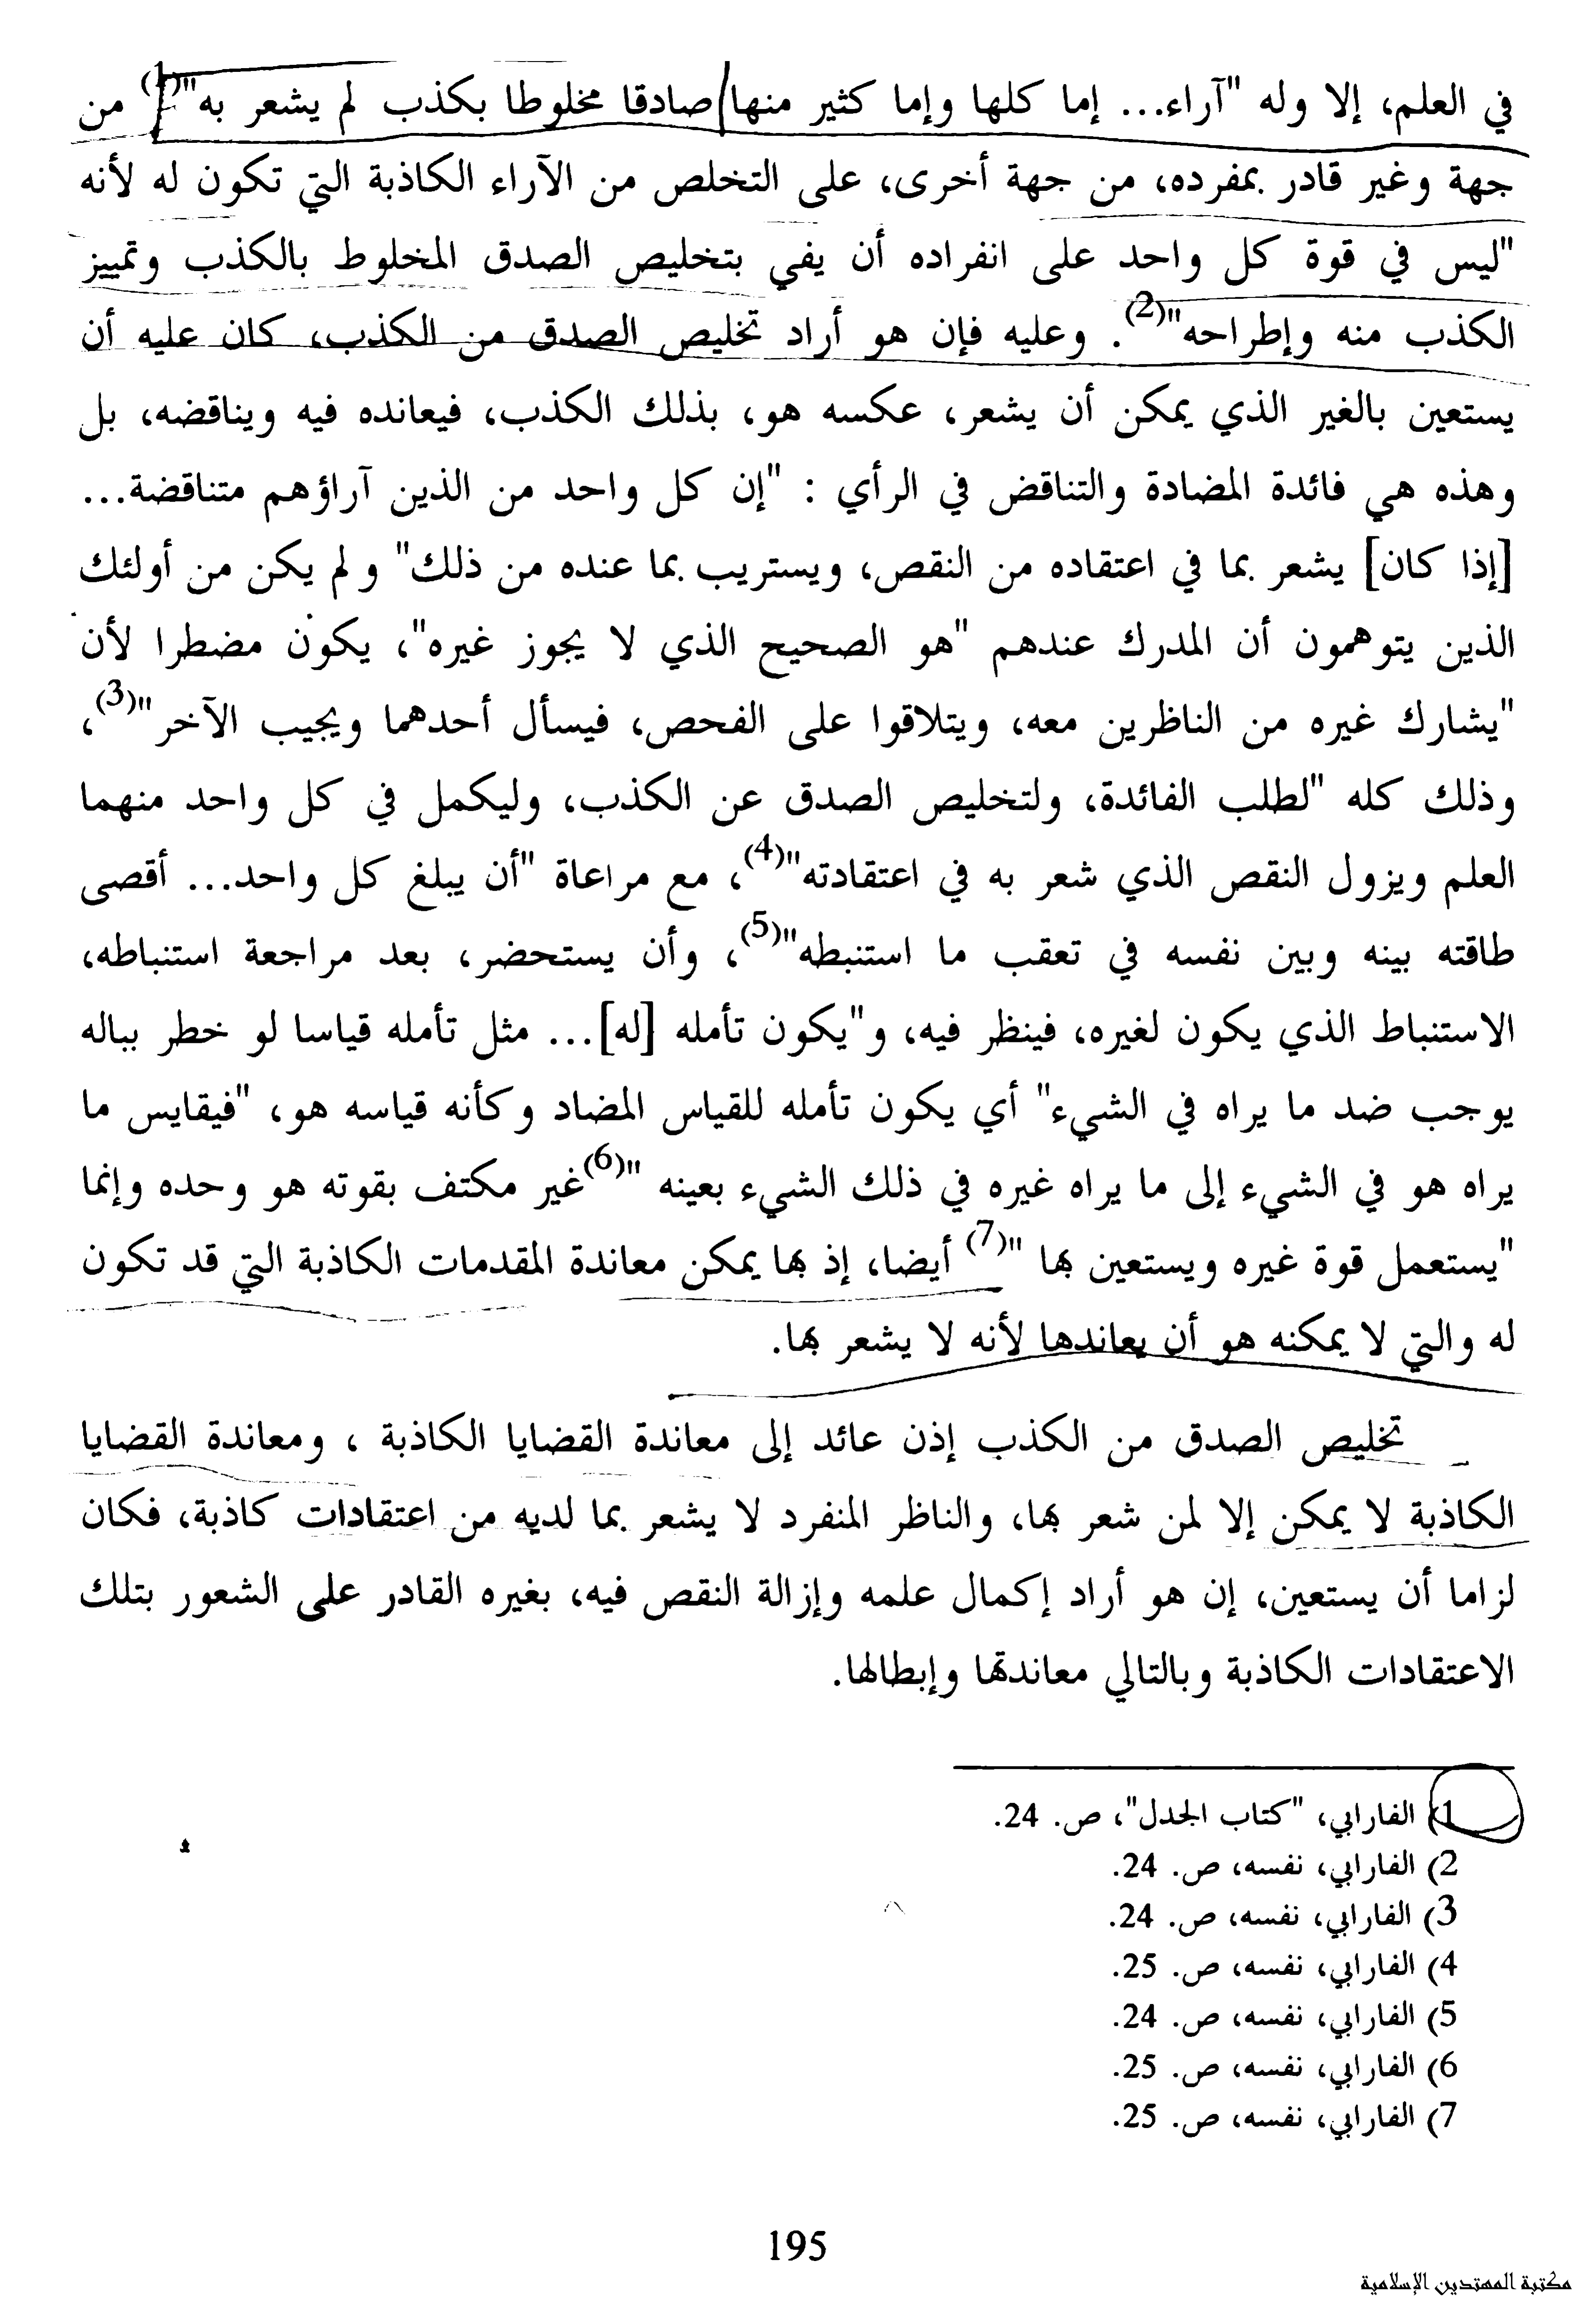 في العلم، إلا وله "آراء... إما كلها وإما كثير منها صادقا مخلوطا بكذب لم يشعر به"(1) من
جهة وغير قادر بمفرده، من جهة أخرى، على التخلص من الآراء الكاذبة التي تكون له لأنه
"ليس في قوة كل واحد على انفراده أن يفي بتخليص الصدق المخلوط بالكذب وتمييز
الكذب منه وإطراحه"(2). وعليه فإن هو أراد تخليص الصدق من الكذب، كان عليه أن
يستعين بالغير الذي يمكن أن يشعر، عكسه هو، بذلك الكذب، فيعانده فيه ويناقضه، بل
وهذه هي فائدة المضادة والتناقض في الرأي : "إن كل واحد من الذين آراؤهم متناقضة...
[إذا كان] يشعر بما في اعتقاده من النقص، ويستريب بما عنده من ذلك" و لم يكن من أولئك
الذين يتوهمون أن المدرك عندهم "هو الصحيح الذي لا يجوز غيره"، يكون مضطرا لأن
"يشارك غيره من الناظرين معه، ويتلاقوا على الفحص، فيسأل أحدهما ويجيب الآخر"(3)،
وذلك كله "لطلب الفائدة، ولتخليص الصدق عن الكذب، وليكمل في كل واحد منهما
العلم ويزول النقص الذي شعر به في اعتقادته"(4)، مع مراعاة "أن يبلغ كل واحد... أقصى
طاقته بينه وبين نفسه في تعقب ما استنبطه"(5)، وأن يستحضر، بعد مراجعة استنباطه،
الاستنباط الذي يكون لغيره، فينظر فيه، و"يكون تأمله [له]... مثل تأمله قياسا لو خطر بباله
يوجب ضد ما يراه في الشيء" أي يكون تأمله للقياس المضاد وكأنه قياسه هو، "فيقايس ما
يراه هو في الشيء إلى ما يراه غيره في ذلك الشيء بعينه "(6)غير مكتف بقوته هو وحده وإنما
"يستعمل قوة غيره ويستعين بها "(7) أيضا، إذ بها يمكن معاندة المقدمات الكاذبة التي قد تكون
له والتي لا يمكنه هو أن يعاندها لأنه لا يشعر بها.
تخليص الصدق من الكذب إذن عائد إلى معاندة القضايا الكاذبة ، ومعاندة القضايا
الكاذبة لا يمكن إلا لمن شعر بها، والناظر المنفرد لا يشعر بما لديه من اعتقادات كاذبة، فكان
لزاما أن يستعين، إن هو أراد إكمال علمه وإزالة النقص فيه، بغيره القادر على الشعور بتلك
الاعتقادات الكاذبة وبالتالي معاندتها وإبطالها.
1) الفارابي، "كتاب الجدل"، ص. 24.
2) الفارابي، نفسه، ص. 24.
3) الفارابي، نفسه، ص. 24.
4) الفارابي، نفسه، ص. 25.
5) الفارابي، نفسه، ص. 24.
6) الفارابي، نفسه، ص. 25.
7) الفارابي، نفسه، ص. 25.
195
مكتبة المهتدين الإسلامية